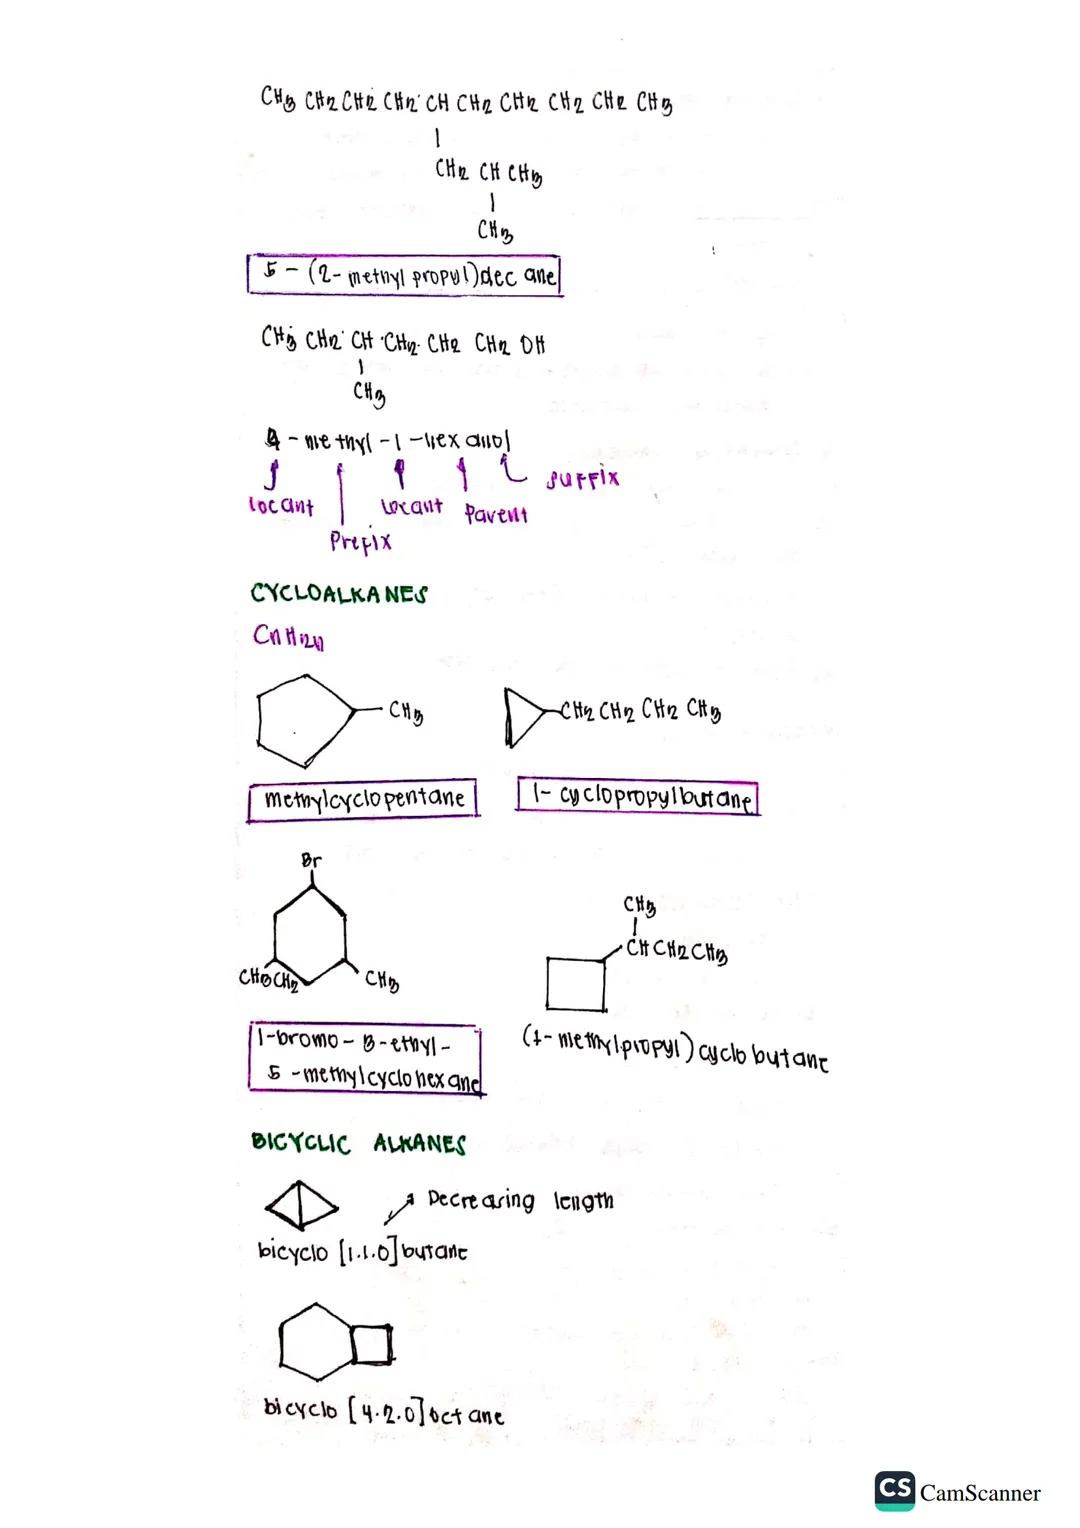 CH3 CH2 CH2 CH2 CH CH2 CH2 CH2 CH2 CH3
CH2 CH CH3
CH3
5 - (2- methyl propyl)dec ane
CH3 CH2 CH CH2 CH2 CH2 OH
CH3
4 - methyl -1 -hex anol
locant
Prefix
locant
Parent
suffix
CYCLOALKANES
CnH2n
CH3
CH2 CH2 CH2 CH3
methylcyclopentane
1- cyclopropylbutane
Br
CH3CH2
CH3
CH3
CH CH2 CH3
1-bromo - 3-ethyl -
5 -methylcyclohexane
(1- methylpropyl) cyclo butane
BICYCLIC ALKANES
Decreasing length
bicyclo [1.1.0] butane
bicyclo [4.2.0] octane
CS CamScanner